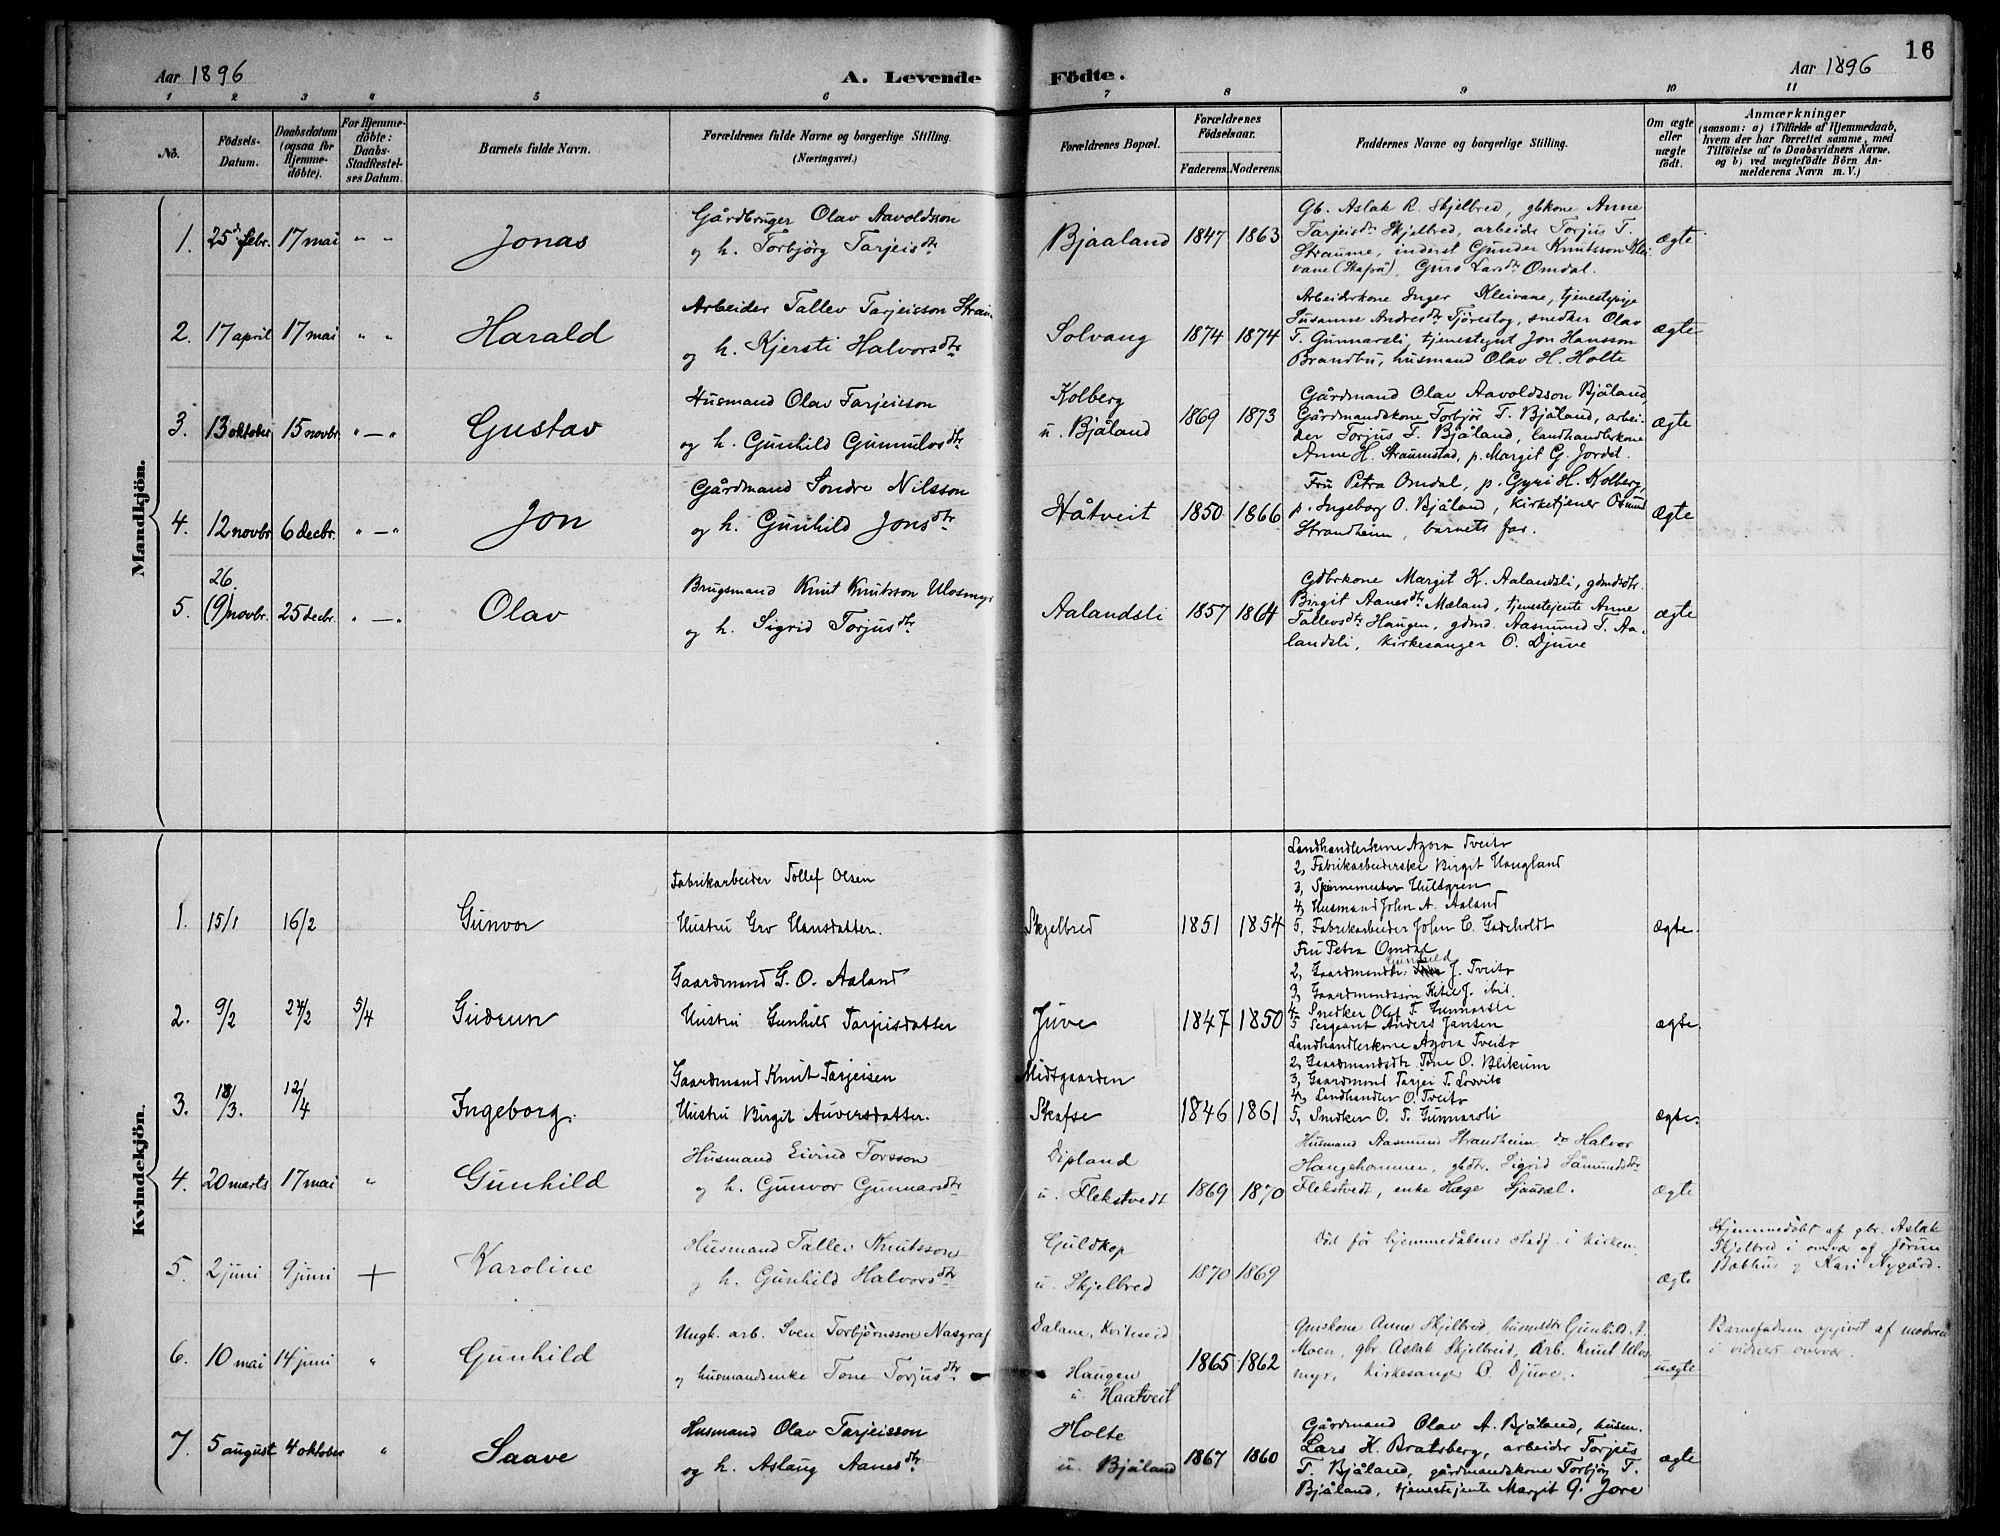 16
Aar 1896
A. Levende Födte.
Aar 1896
1 2 3 4 5 6 7 8 9 10 11
No.
Födsels-Datum.
Daabsdatum (ogsaa for Hjemme-döbte).
For Hjemme-döbte: Daabs-Stadfæstel-ses Datum.
Barnets fulde Navn.
Forældrenes fulde Navne og borgerlige Stilling.
(Næringsvei.)
Forældrenes Bopæl.
Forældrenes Födselsaar.
Faderens. Moderens.
Faddernes Navne og borgerlige Stilling.
Om ægte eller uægte födt.
Anmærkninger
(saasom: a) i Tilfælde af Hjemmedaab,
hvem der har forrettet samme, med
Tilföielse af to Daabsvidners Navne,
og b) ved uægtefödte Börn An-
melderens Navn m. V.)
Mandkjön.
1. 25 febr. 17 mai " " Jonas
Gårdbruger Olav Aavoldsson
og h. Torbjörg Tarjeisdtr
Bjaaland 1847 1863
Gb. Aslak R. Skjelbred, gbkone Anne
Tarjeisdtr Skjelbred, arbeidr Torjus T.
Straume, inderst Gunder Knutsson Klei-
vane (Skafså), Guro Larsdtr Omdal.
ægte
2. 17 april 17 mai " " Harald
Arbeider Tallev Tarjeisson Straum
og h. Kjersti Halvorsdtr
Solvang 1874 1874
Arbeiderkone Inger Kleivane, tjenestepige
Susanne Andresdtr Tjörestog, snedker Olav
T. Gunnarsli, tjenestegut Jon Hansson
Brandbu, husmand Olav H. Holte
ægte
3. 13 oktober 15 novbr. " — " Gustav
Husmand Olav Tarjeisson
og h. Gunhild Gunnulvsdtr
Kolberg
u. Bjåland 1869 1873
Gårdmand Olav Aavoldsson Bjåland,
Gårdmandskone Torbjør T. Bjåland, arbei-
der Torjus T. Bjåland, landhandlerkone
Anne H. Straumstad, p. Margit G. Jordet.
ægte
4. 12 novbr. 6 decbr. " — " Jon
Gårdmand Sondre Nilsson
og h. Gunhild Jonsdtr
Håtveit 1850 1866
Fru Petra Omdal, p. Gyri H. Kolberg,
p. Ingeborg O. Bjåland, kirketjener Osmund
Strandheim, barnets far.
ægte
5. 26. (9) novbr. 25 decbr. " — " Olav
Brugsmand Knut Knutsson Ulosmyr
og h. Sigrid Torjusdtr
Aalandsli 1857 1864
Gdbrkone Margit K. Aalandsli, gdmdsdtr.
Birgit Aanesdtr Mæland, tjenestejente Anne
Tallevsdtr Haugen, gdmd. Aasmund T. Aa-
landsli, kirkesanger O. Djuve
ægte
Kvindekjön.
1. 15/1 16/2 Gunvor
Fabrikarbeider Tollef Olsen
Hustru Gro Hansdatter.
Skjelbred 1851 1854
Landhandlerkone Azora Tveito
2, Fabrikarbeiderske Birgit Haugland
3, Spindemester Hultgren
4, Husmand John A. Aaland
5, Fabrikarbeider John C. Gadeholdt
ægte.
2. 9/2 24/2 5/4 Gudrun
Gaardmand G. O. Aaland
Hustru Gunhild Tarjeisdatter
Juve 1847 1850
Fru Petra Omdal
2, Gaardmandsdtr. Gunhild J. Tveito
3, Gaardmandssøn Ketil J. ibid.
4. Snedker Olaf T. Gunnarsli
5 Sergeant Anders Jansen
ægte.
3. 18/3. 12/4 Ingeborg.
Gaardmand Knut Tarjeisen
Hustru Birgit Auversdatter.
Midtgaarden
Skafse 1846 1861
Landhandlerkone Azora Tveito
2, Gaardmandsdtr. Tone O. Blikum
3, Gaardmand Tarjei T. Lovvik
4, Landhandler O. Tveito
5, Snedker O. T. Gunnarsli
ægte.
4. 20 marts 17 mai " Gunhild
Husmand Eivind Torsson
og h. Gunvor Gunnarsdtr
Dipland
u. Flekstvedt 1869 1870
Husmand Aasmund Strandheim, do Halvor
Haugehommen, gbdtr. Sigrid Såmundsdtr
Flekstvedt, enke Hæge Sjausæl.
ægte
5. 2 juni 9 juni + Karoline
Husmand Tallev Knutsson
og h. Gunhild Halvorsdtr
Guldkop
u. Skjelbred 1870 1869
Död för hjemmedåbens stadf. i kirken.
ægte
Hjemmedöbt af gbr. Aslak
Skjelbred i overvær af Jörun
Babhus og Kari Nygård.
6. 10 mai 14 juni " Gunhild
Ungk. arb. Sven Torbjörnsson Nasgraf
og husmandsenke Tone Torjusdtr
Dalane, Kviteseid
Haugen
u. Haatveit 1865 1862
Anne Skjelbred, Gunhild A.
Moen, gbr. Aslak Skjelbreid, arb. Knut Ulos-
myr, kirkesanger O. Djuve.
uægte
Barnefadren opgivet af modren
i vidners overvær.
7. 5 august 4 oktober " Saave
Husmand Olav Tarjeisson
og h. Aslaug Aanesdtr
Holte
u. Bjåland 1867 1860
Gårdmand Olav A. Bjåland, husm.
Lars K. Bratsberg, arbeidr Torjus
T. Bjåland, gårdmandskone Torbjög T.
Bjåland, tjenestejente Margit G. Jore
ægte